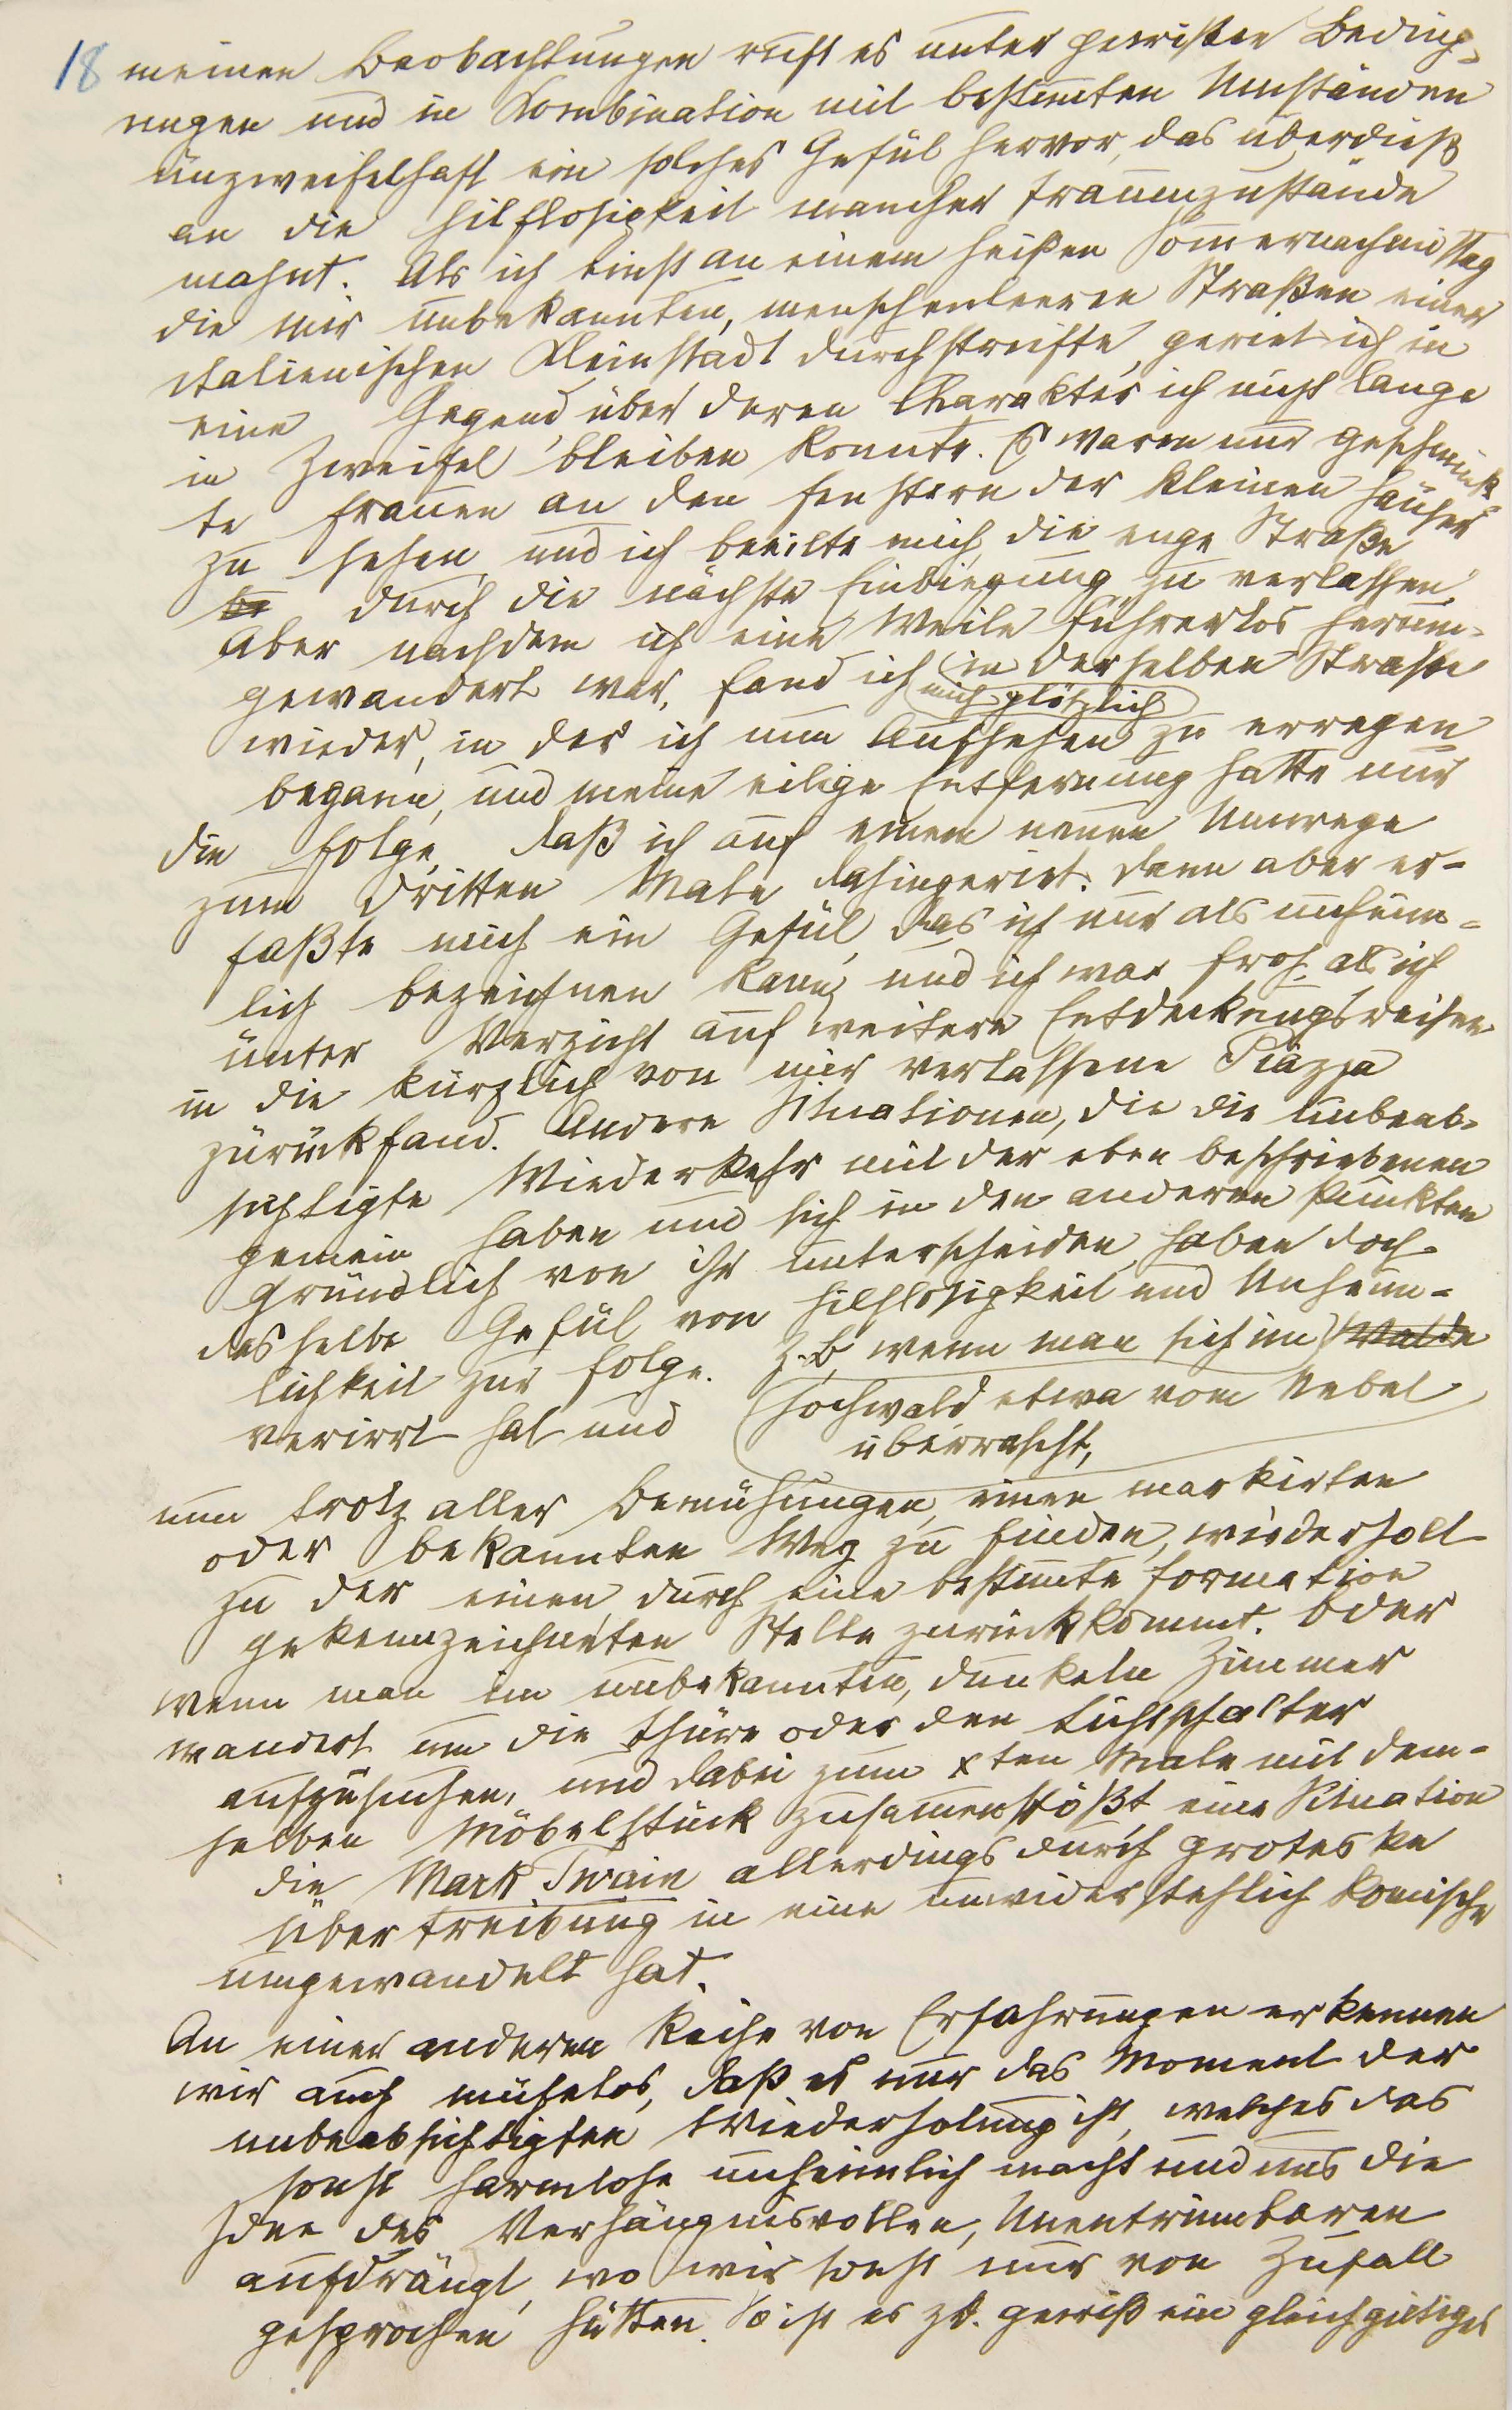 18 meinen Beobachtungen ruft es unter gewißen Beding-
nungen und in Kombination mit bestimmten Umständen
unzweifelhaft ein solches Gefül hervor, das überdieß
an die Hilflosigkeit mancher Traumzustände
mahnt. Als ich einst an einem heißen Sommernachmittag
die mir unbekannten, menschenleeren Straßen einer
italienischen Kleinstadt durchstreifte, geriet ich in
eine Gegend, über deren Charakter ich nicht lange
in Zweifel bleiben konnte. Es waren nur geschmink-
te Frauen an den Fenstern der kleinen Häuser
zu sehen und ich beeilte mich, die enge Straße
durch die nächste Einbiegung zu verlassen.
Aber nachdem ich eine Weile führerlos herum-
gewandert war, fand ich in derselben Straße
mich plötzlich
wieder, in der ich nun Aufsehen zu erregen
begann, und meine eilige Entfernung hatte nur
die Folge, daß ich auf einem neuen Umwege
zum dritten Male dahingeriet. Dann aber er-
faßte mich ein Gefül, das ich nur als unheim-
lich bezeichnen kann, und ich war froh, als ich
unter Verzicht auf weitere Entdeckungsreisen
in die kürzlich von mir verlassene Piazza
zurückfand. Andere Situationen, die die unbeab-
sichtigte Wiederkehr mit der eben beschriebenen
gemein haben und sich in den anderen Punkten
gründlich von ihr unterscheiden, haben doch
dasselbe Gefül von Hilflosigkeit und Unheim-
lichkeit zur Folge. Z.B. wenn man sich im Walde
verirrt hat und Hochwald etwa vom Nebel
überrascht,
nun trotz aller Bemühungen, einen markirten
oder bekannten Weg zu finden, wiederholt
zu der einen, durch eine bestimmte Formation
gekennzeichneten Stelle zurückkommt. Oder
wenn man im unbekannten, dunkeln Zimmer
wandert um die Thüre oder den Lichtschalter
aufzusuchen, und dabei zum xten Male mit dem-
selben Möbelstück zusammenstößt eine Situation
die Mark Twain allerdings durch groteske
Übertreibung in eine unwiderstehlich komische
umgewandelt hat.
An einer anderen Reihe von Erfahrungen erkennen
wir auch mühelos, daß es nur das Moment der
unbeabsichtigten Wiederholung ist, welches das
sonst harmlose unheimlich macht und uns die
Idee des Verhängnisvollen, Unentrinnbaren
aufdrängt, wo wir sonst nur von Zufall
gesprochen hätten. So ist es zB. gewiß ein gleichgiltiges